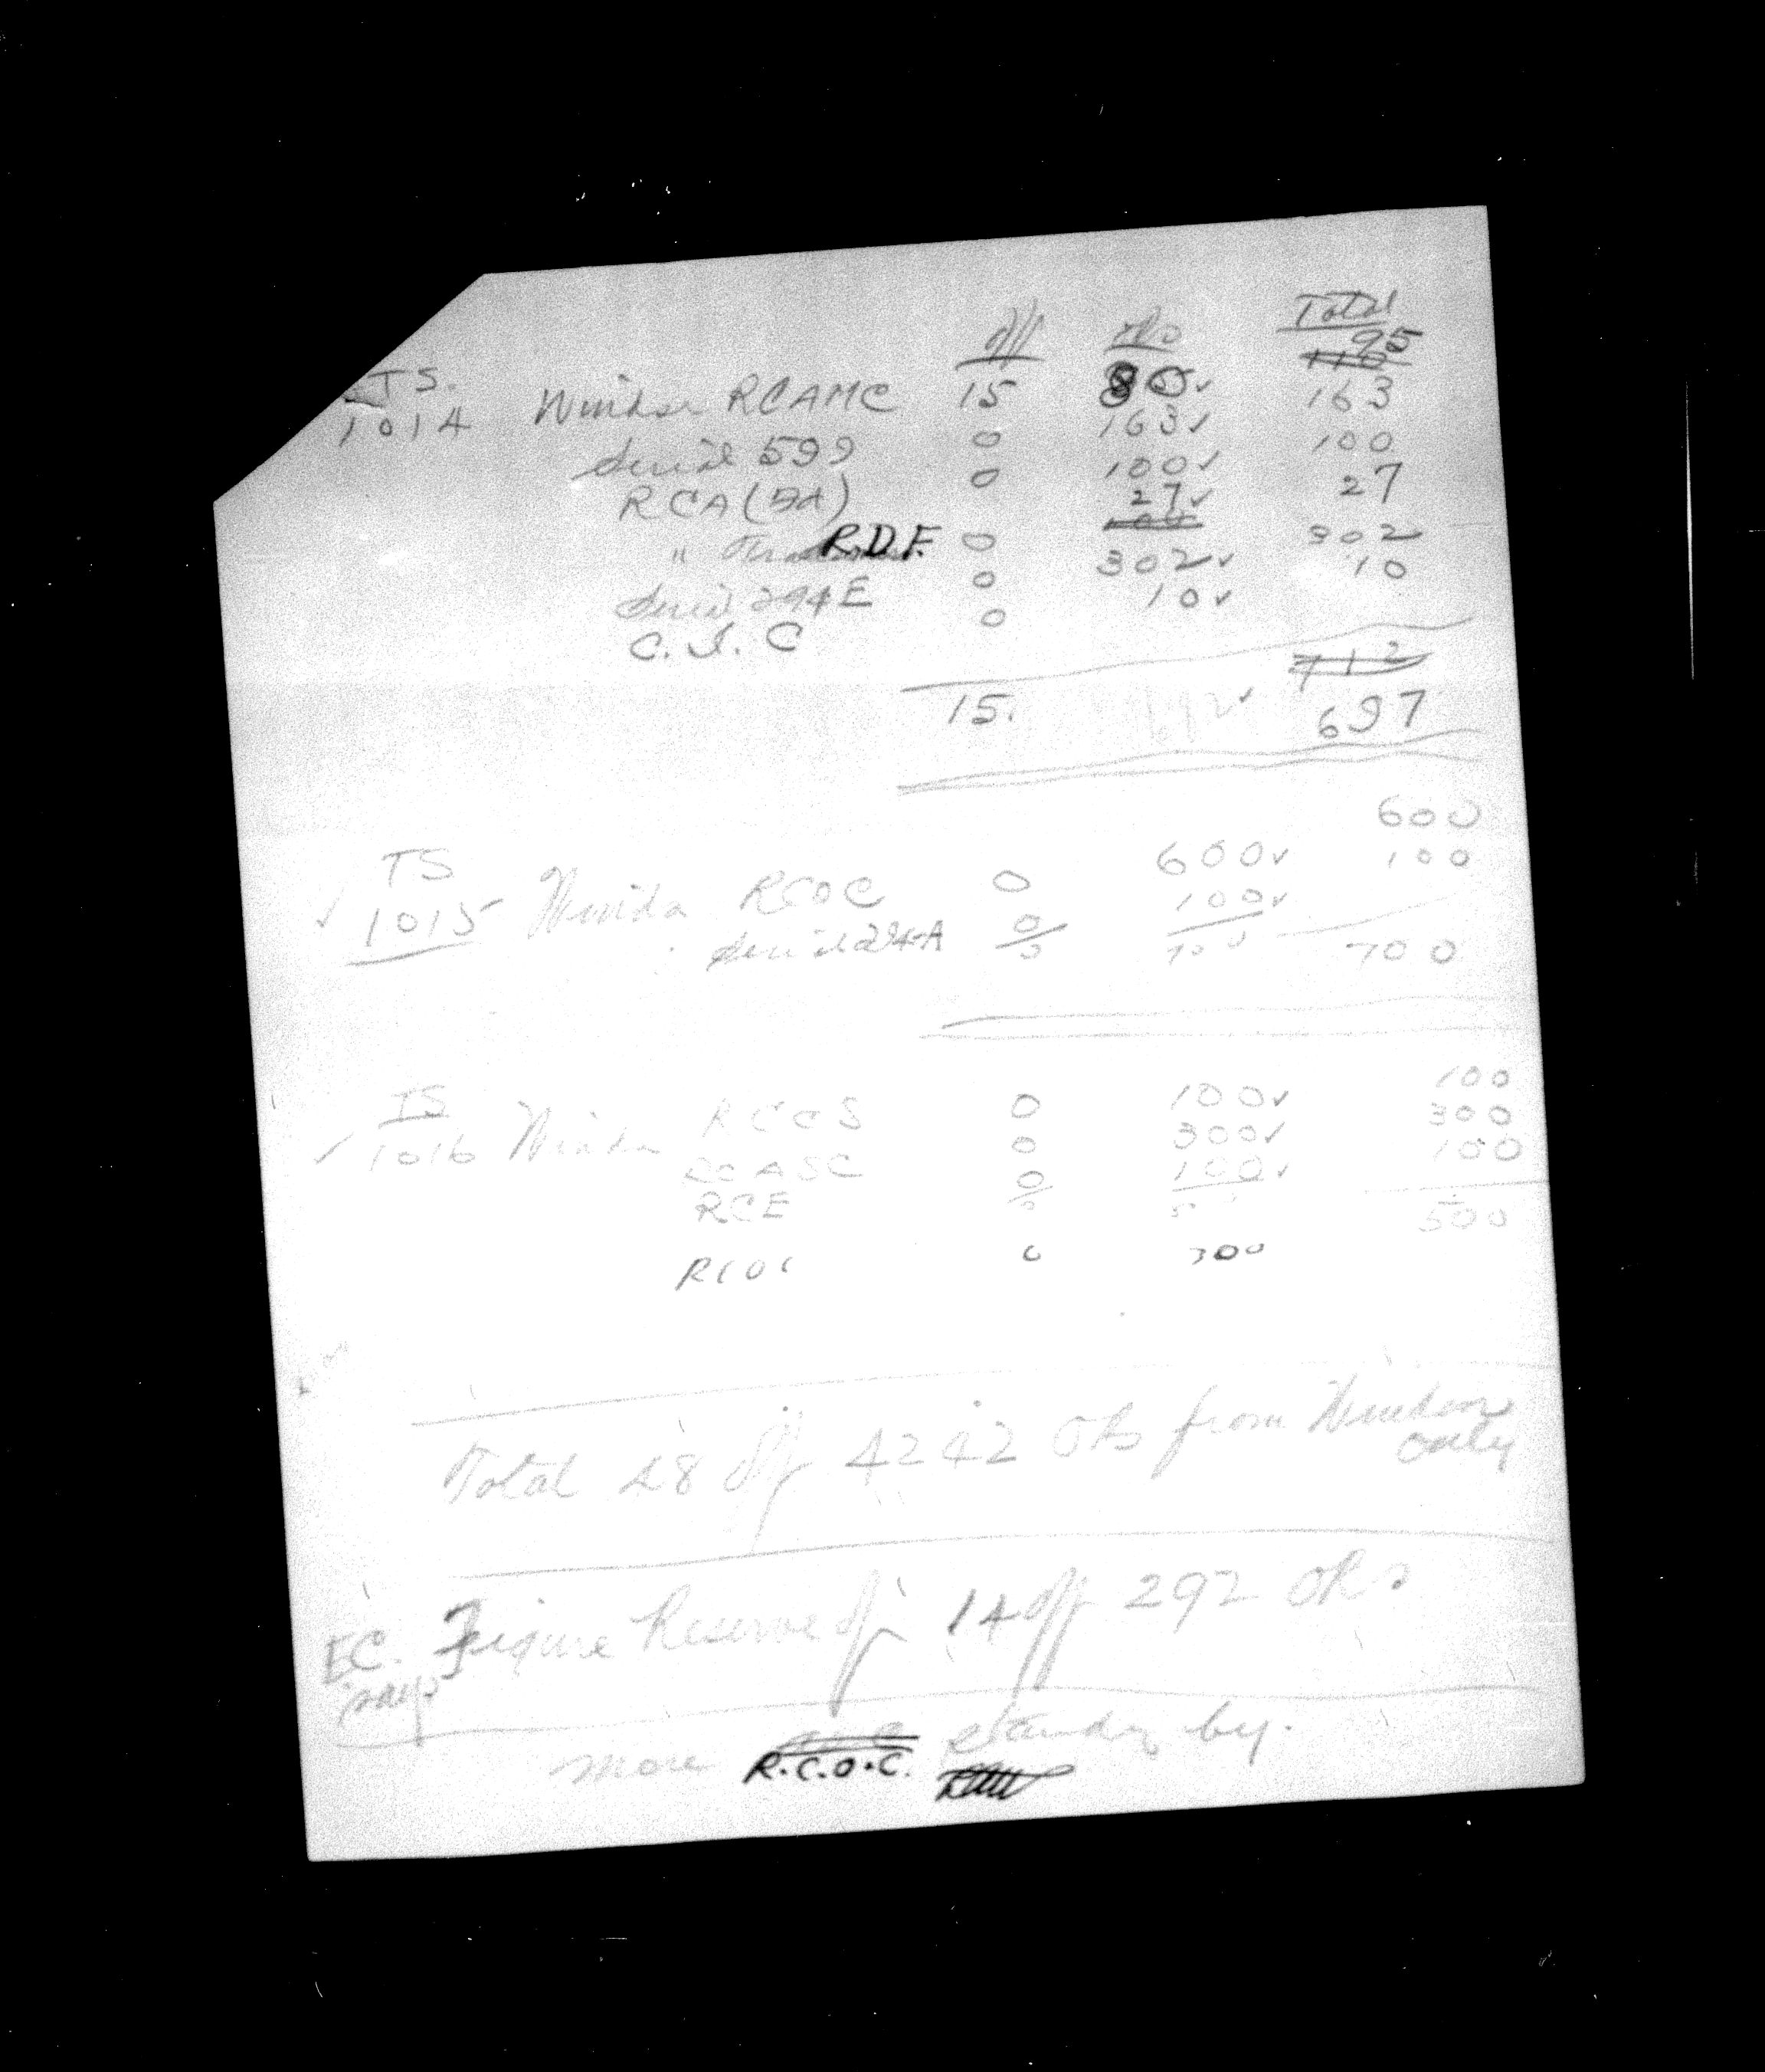 Off ORs Total
TS. 1014 Windsor RCAMC 15 80✓ 95
Serial 599 0 163✓ 163
RCA (Fd) 0 100✓ 100
" R.D.F. 0 27✓ 27
Serial 294E 0 302✓ 302
C.I.C 0 10✓ 10
712
15. ✓ 697
✓ TS 1015 Windsor RCOC 0 600✓ 600
Serial 294-A 0 100✓ 100
0 700 700
✓ TS 1016 Windsor RCCS 0 100✓ 100
RCASC 0 300✓ 300
RCE 0 100✓ 100
0 500
RCOC 0 300
Total 48 Off 4242 ORs from Windsor only
E.C. says Figure Reserve of 14 Off 292 ORs
more R.C.O.C. standing by.